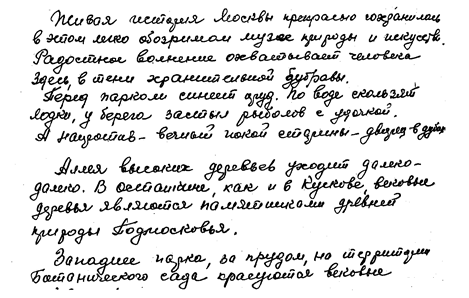 Живая история Москвы прекрасно сохранилась
в этом легко обозримом музее природы и искусств.
Радостное волнение охватывает человека
здесь, в тени хранительной дубравы.
Перед парком синеет пруд. По воде скользят
лодки, у берега застыл рыболов с удочкой.
А напротив - вечный покой старины - дворец в
Аллея высоких деревьев уходит далеко-
далеко. В Останкине, как и в Кускове, вековые
деревья являются памятниками древней
природы Подмосковья.
Западнее парка, за прудом, на территории
Ботанического сада красуются вековые